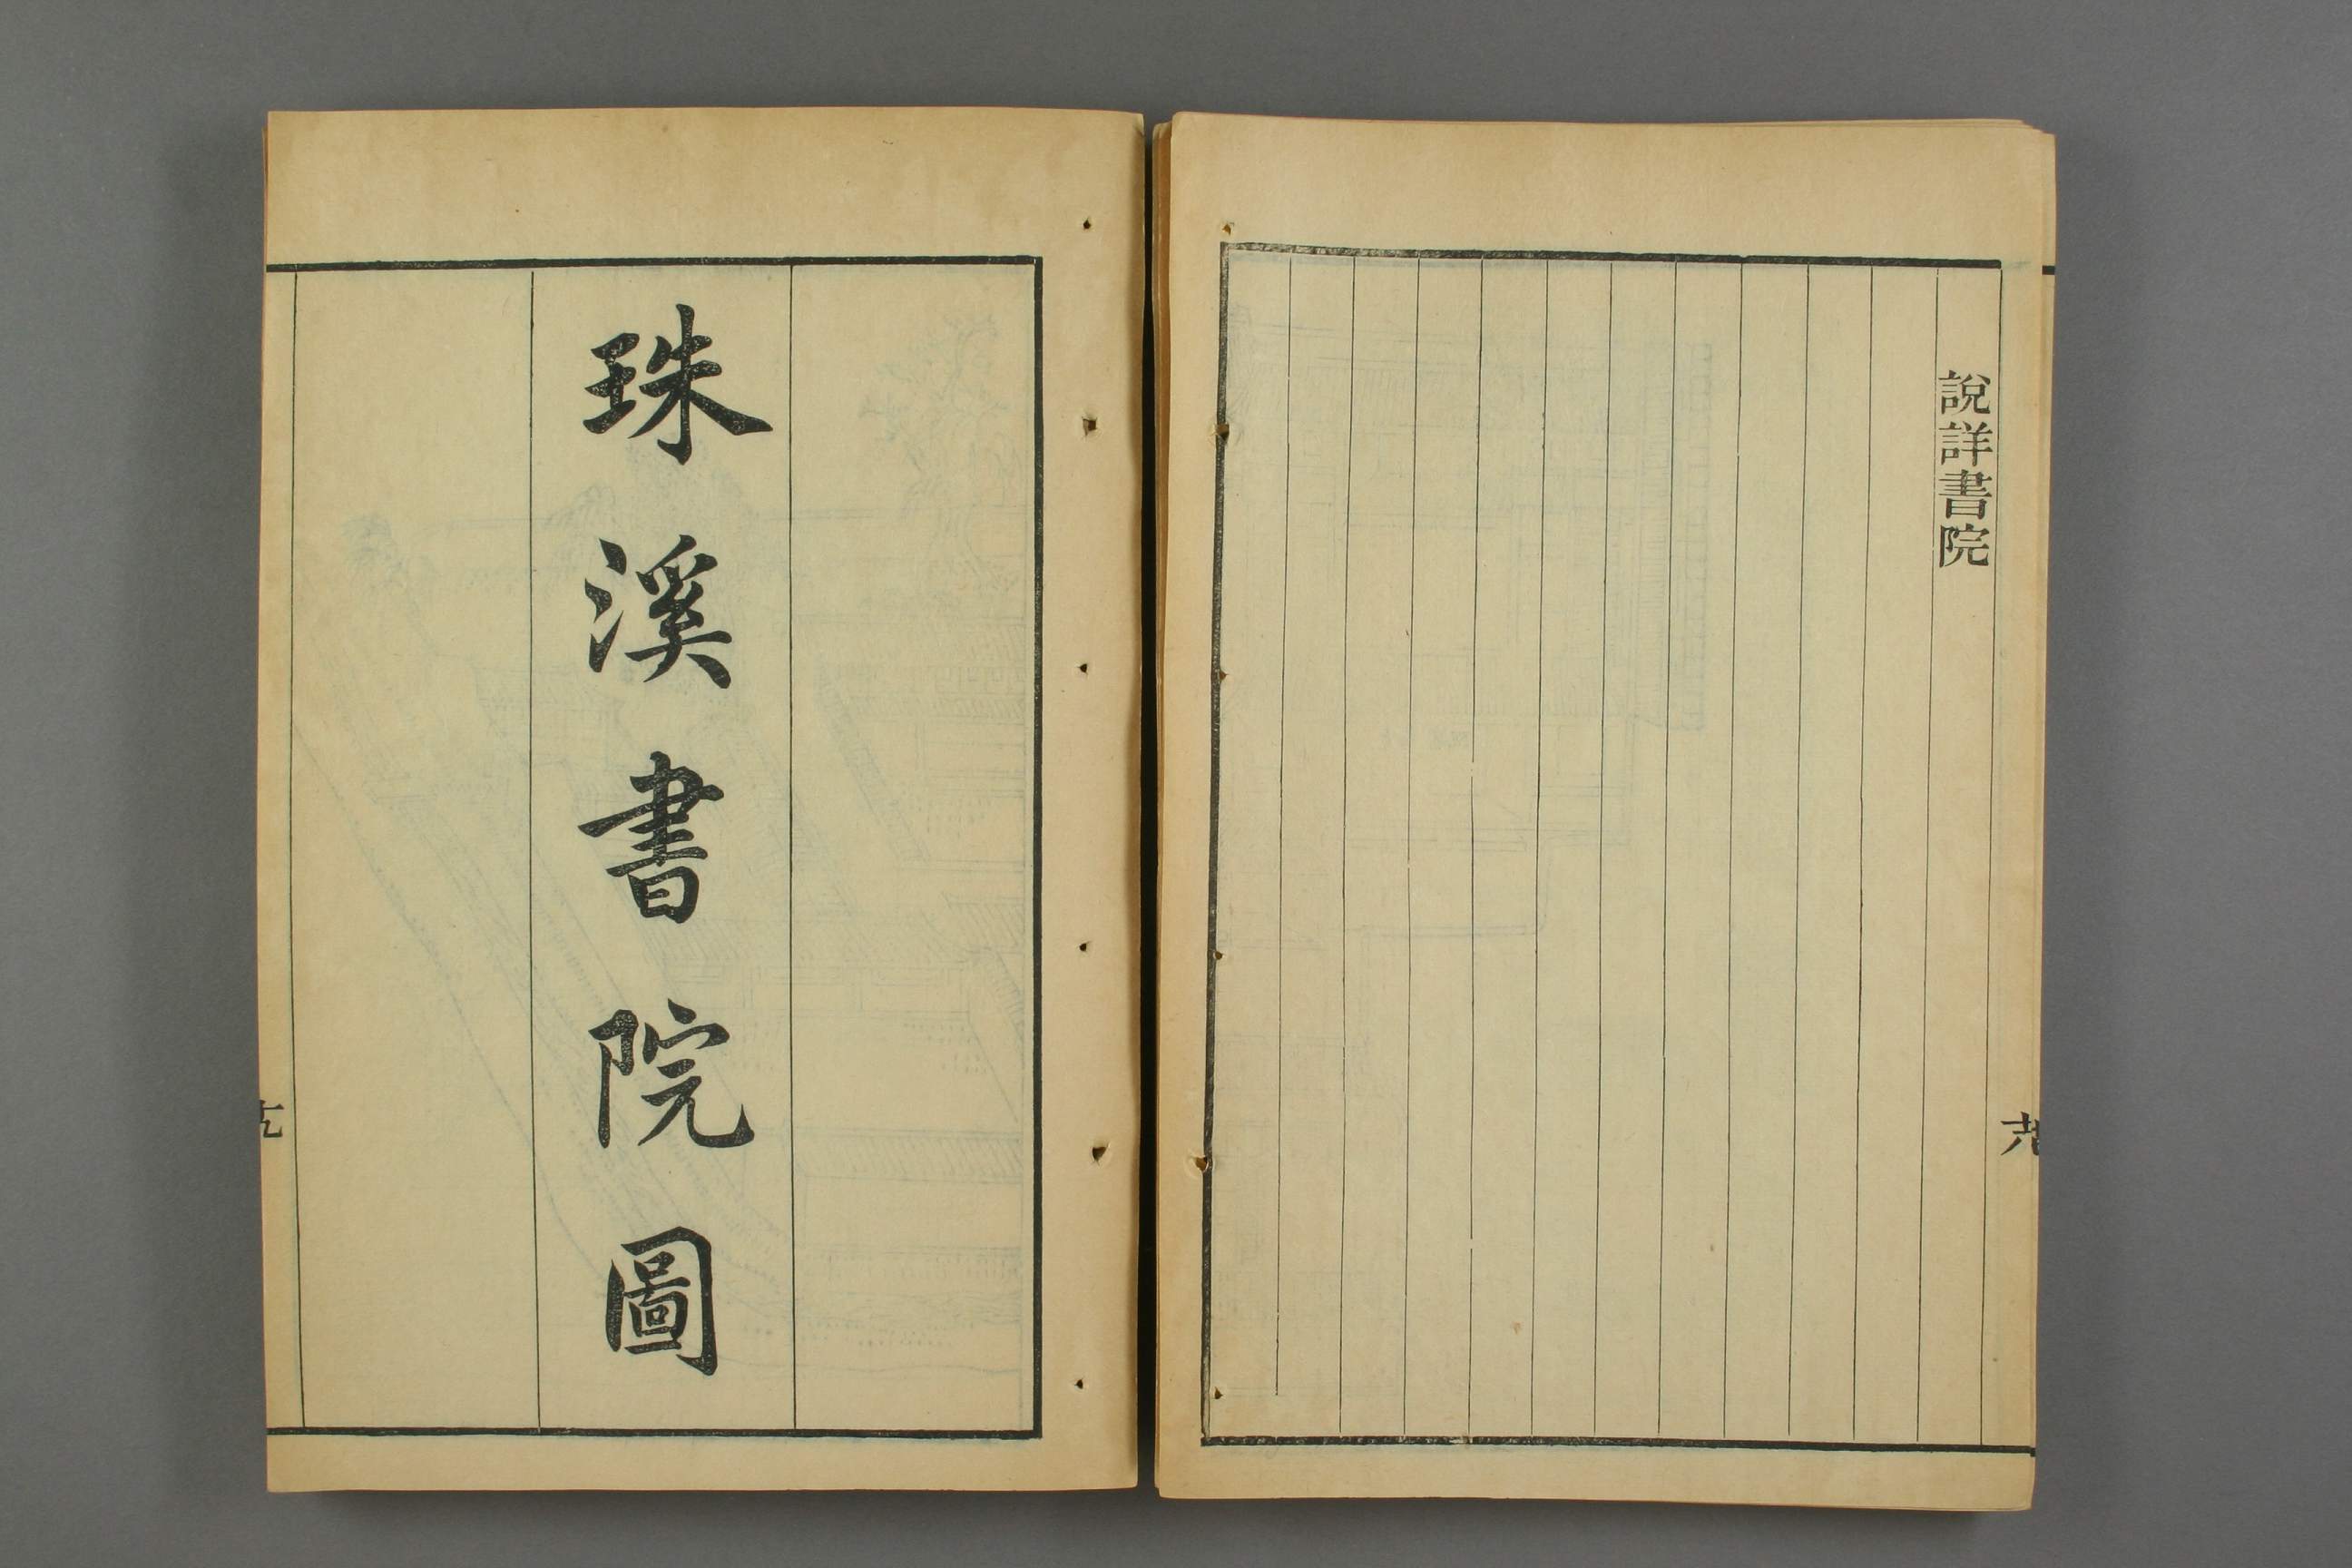 說詳書院
珠溪書院圖